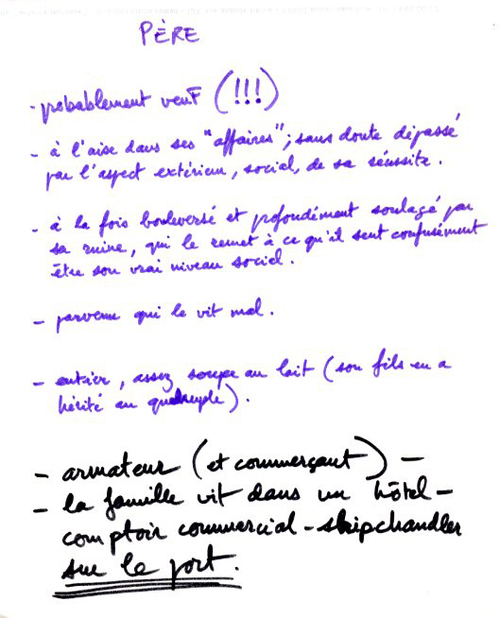 PÈRE
- probablement veuf (!!!)
- à l'aise dans ses "affaires"; sans doute dépassé
par l'aspect extérieur, social, de sa réussite.
- à la fois bouleversé et profondément soulagé par
sa ruine, qui le remet à ce qu'il sent confusément
être son vrai niveau social.
- parvenu qui le vit mal.
- entier, assez soupe au lait (son fils en a
hérité au quadruple).
- armateur (et commerçant) -
- la famille vit dans un hôtel -
comptoir commercial - shipchandler
sur le port.